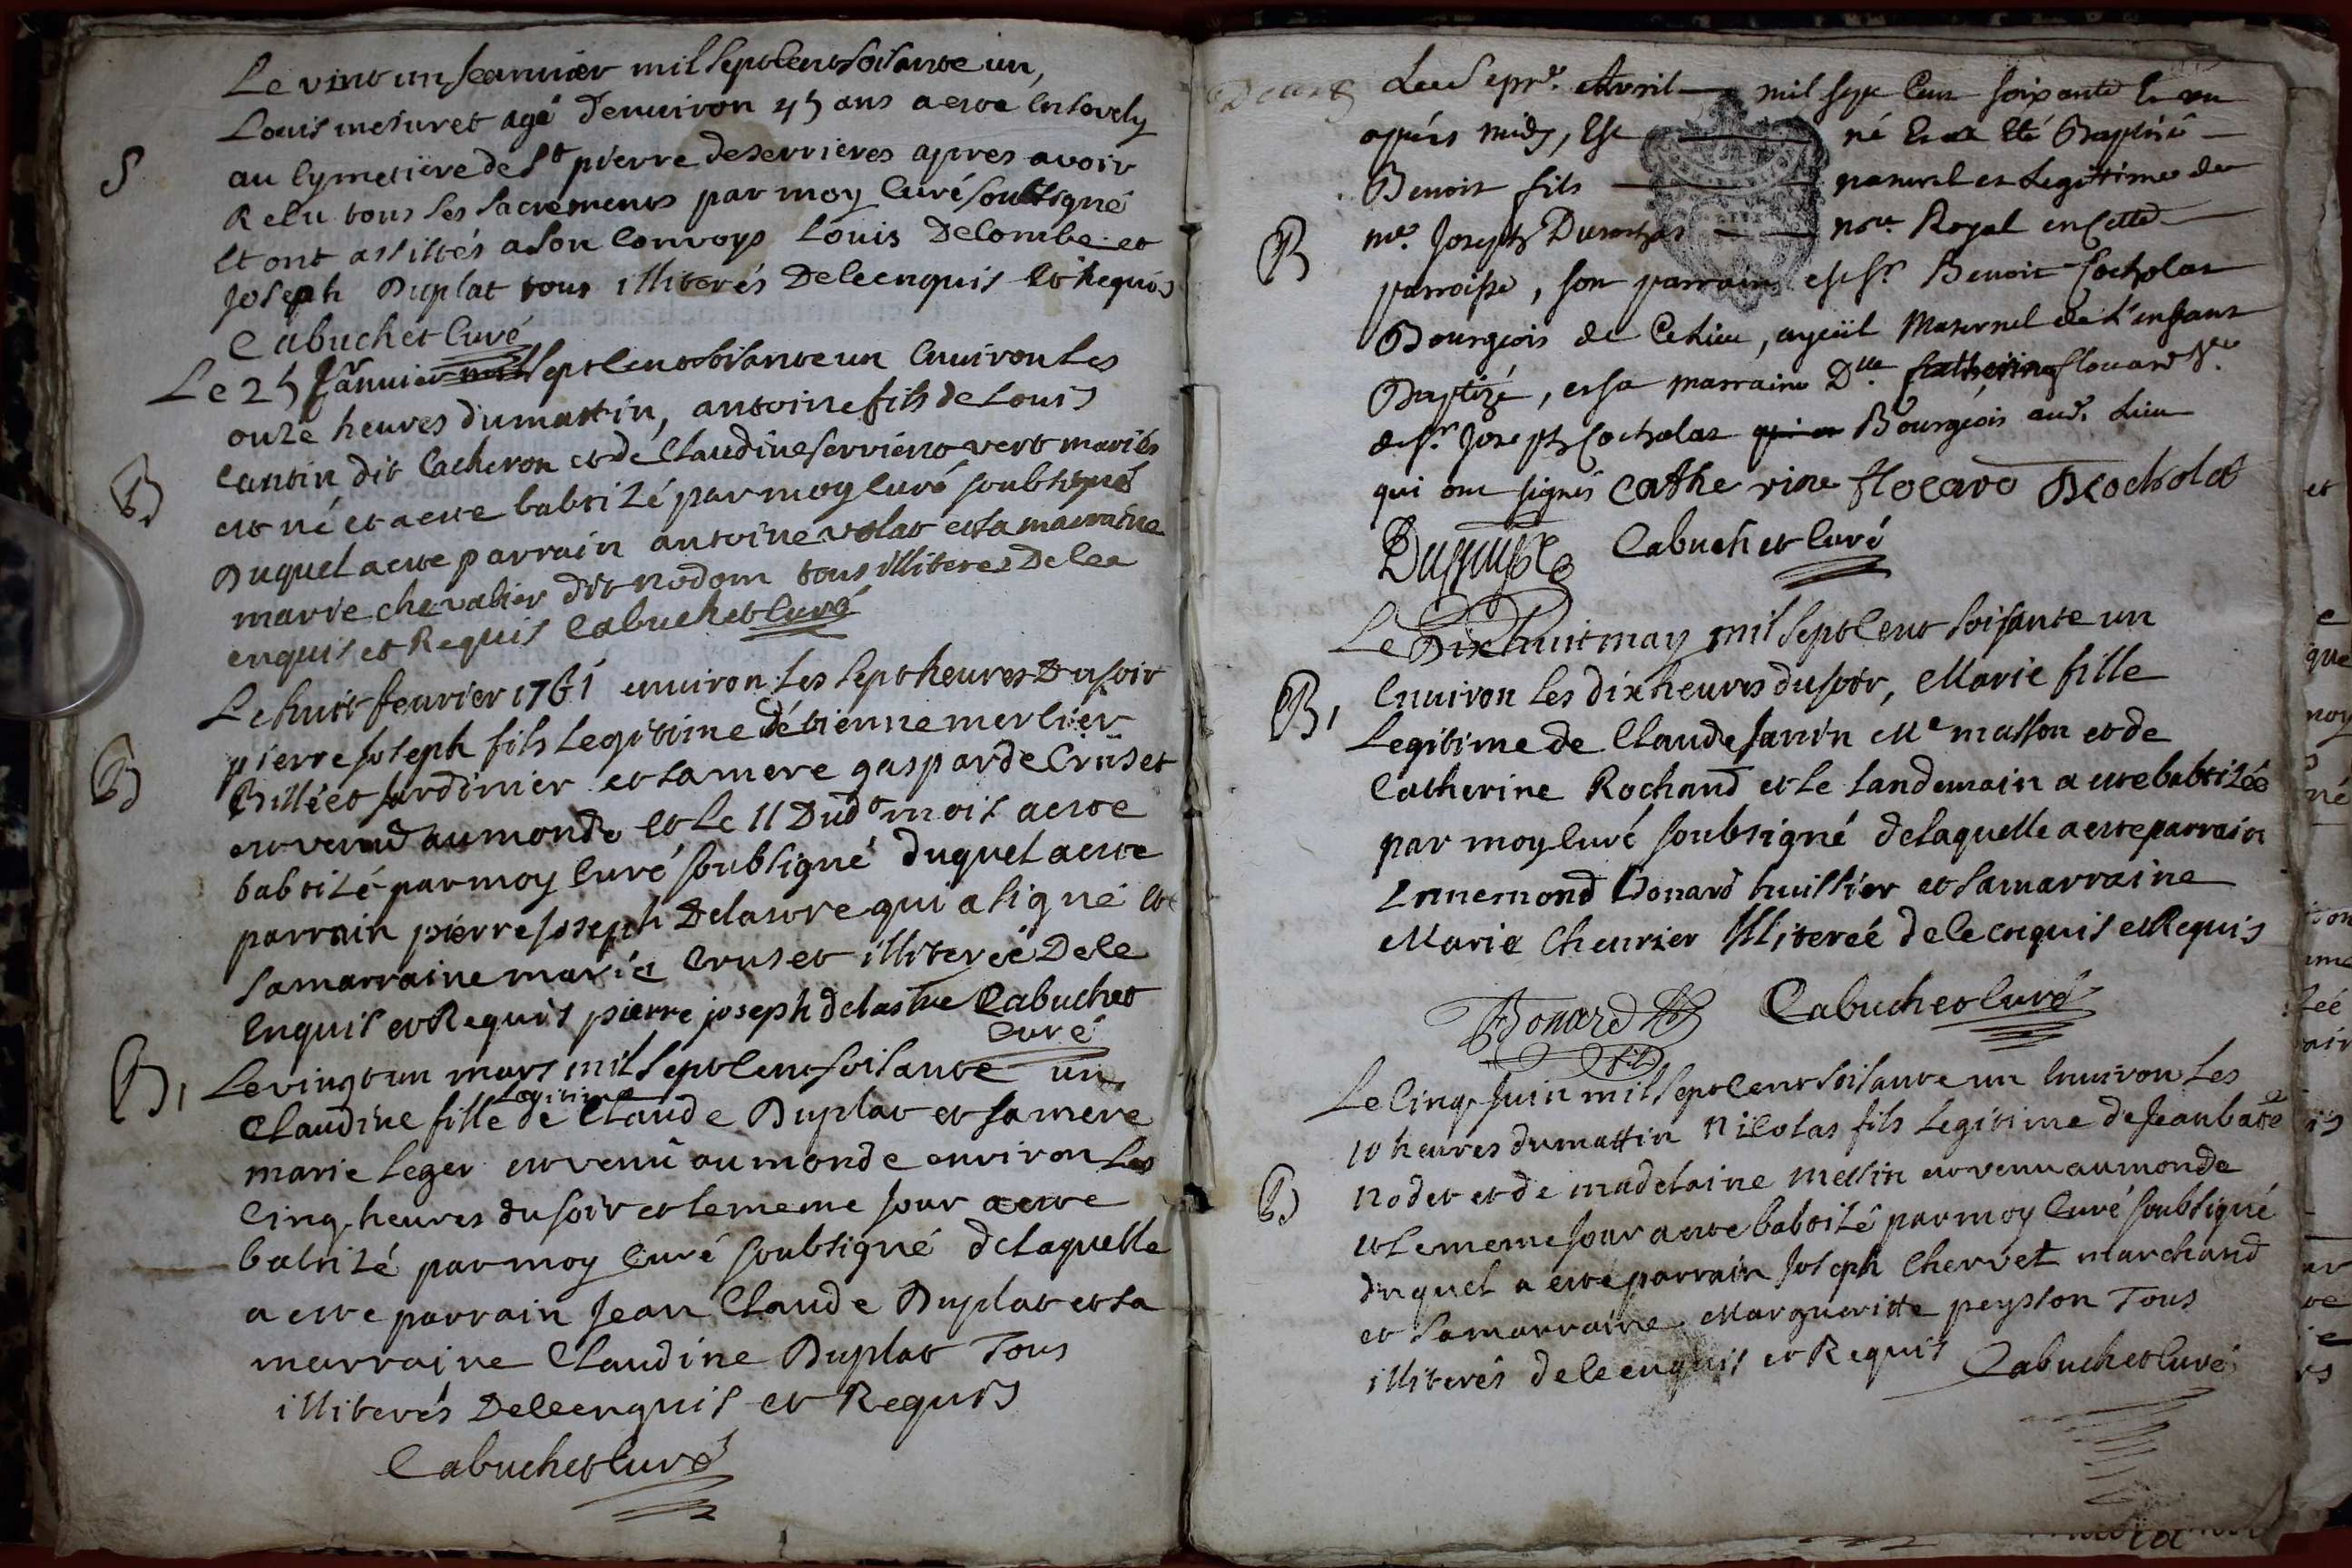 Le vint un Jeanvier mil Sept Cent Soisante un,
Louis mesuret agé D'enuiron 45 ans a este Ensevely
S
au Cymetiere de St pierre de Serrieres apres avoir
Recu tous les Sacrements par moy Curé soubsigné
Et ont assistés a Son Convoys Louis Delombe et
Joseph Duplat tous illiterés De ce enquis Et Requis
Cabuchet Curé
Le 25 Janvier Sept Cent Soisante un Enuiron Les
onze heures du mattin, antoine fils de Louis
Cantin dit Cacheron et de Claudine mariés
B
est né et a este babtizé par moy Curé soubsigné
Duquel a este parrain antoine volat et sa marraine
marie chevalier dit nodom tous illiteres De ce
enquis et Requis Cabuchet Curé
Le huit feurier 1761 enuiron Les Sept heures Du soir
pierre Joseph fils Legitime d'étienne merlier
B
Billiet Jardinier et sa mere gasparde Cruset
est venu au monde et Le 11 Dudt mois a este
babtizé par moy Curé soubsigné duquel a este
parrain pierre Joseph Delastre qui a signé et
sa marraine marie Cruset illiterée De ce
Enquis et Requis pierre joseph delastre Cabuchet
Curé
B,
Le vingt un mars mil Sept Cent Soisante un
Legitime
Claudine fille de Claude Duplat et sa mere
marie Leger est venu au monde environ Les
Cinq heures du soir et le meme Jour a este
babtizé par moy Curé soubsigné de laquelle
a este parrain Jean Claude Duplat et sa
marraine Claudine Duplat Tous
illiterés De ce enquis et Requis
Cabuchet Curé
Le Sept.e Avril mil sept Cent soixante Et un
apprés midy, Est né Et a Eté Baptisé
Benoit fils naturel et Legitime de
B
me. Joseph nore. Royal en Cette
parroisse, son parrain est Sr. Benoit Cocholat
Bourgeois de Ce Lieu, ayeüil Maternel de L'enfant
Baptizé, et sa marraine Dlle Catherine flouard
de Sr. Joseph Cocholat qui a Bourgeois aud. Lieu
qui ont signés Cathe rine flocard BCocholat
Cabuchet Curé
Le Dixhuit may mil Sept Cent Soisante un
B,
Enuiron Les dix heures du soir, Marie fille
Legitime de Claude Janin Me masson et de
Catherine Rochand et Le Landemain a este babtizée
par moy Curé soubsigné de laquelle a este parrain
Ennemond Bonard huissier et sa marraine
Marie Cheurier Illiterée de ce enquis et Requis
Bonard Cabuchet Curé
Le Cinq Juin mil Sept Cent Soisante un Enuiron Les
10 heures du mattin Nicolas fils Legitime de Jean batte
B
nodet et de madelaine mellin est venu au monde
et Le meme Jour a este babtizé par moy Curé soubsigné
duquel a este parrain Joseph Chervet marchand
et sa marraine Margueritte peysson Tous
illiterés de ce enquis et Requis Cabuchet Curé